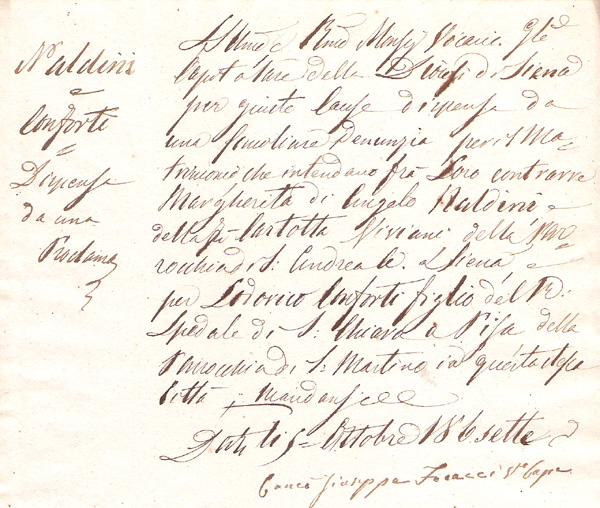 Naldini
e
Conforti
Dispensa
da una
Proclama
Rmo Monsig Vicario Gle
Capitolare della Diocesi di Siena
per giuste Cause dispensa da
una denunzia per il Ma=
trimonio che intendano fra Loro contrarre
Margherita di Angelo Naldini e
della fù Carlotta Viviani della Par=
rochia di S: Andrea Siena
per Lodovico Conforti figlio del R:
Spedale di S: Chiara a Pisa della
Parrochia di S: Martino in questa stessa
Città
Dat: li 5 Ottobre 186 sette
Canco Giuseppe